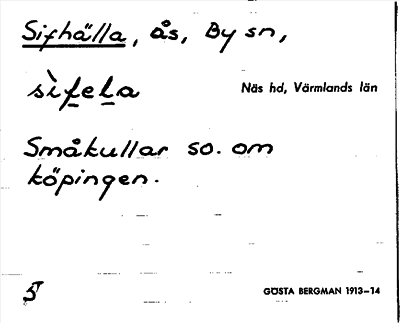 Sifhälla, ås, By sn,
sìfeḷa
Näs hd, Värmlands län
Småkullar so. om
köpingen.
5
GÖSTA BERGMAN 1913–14